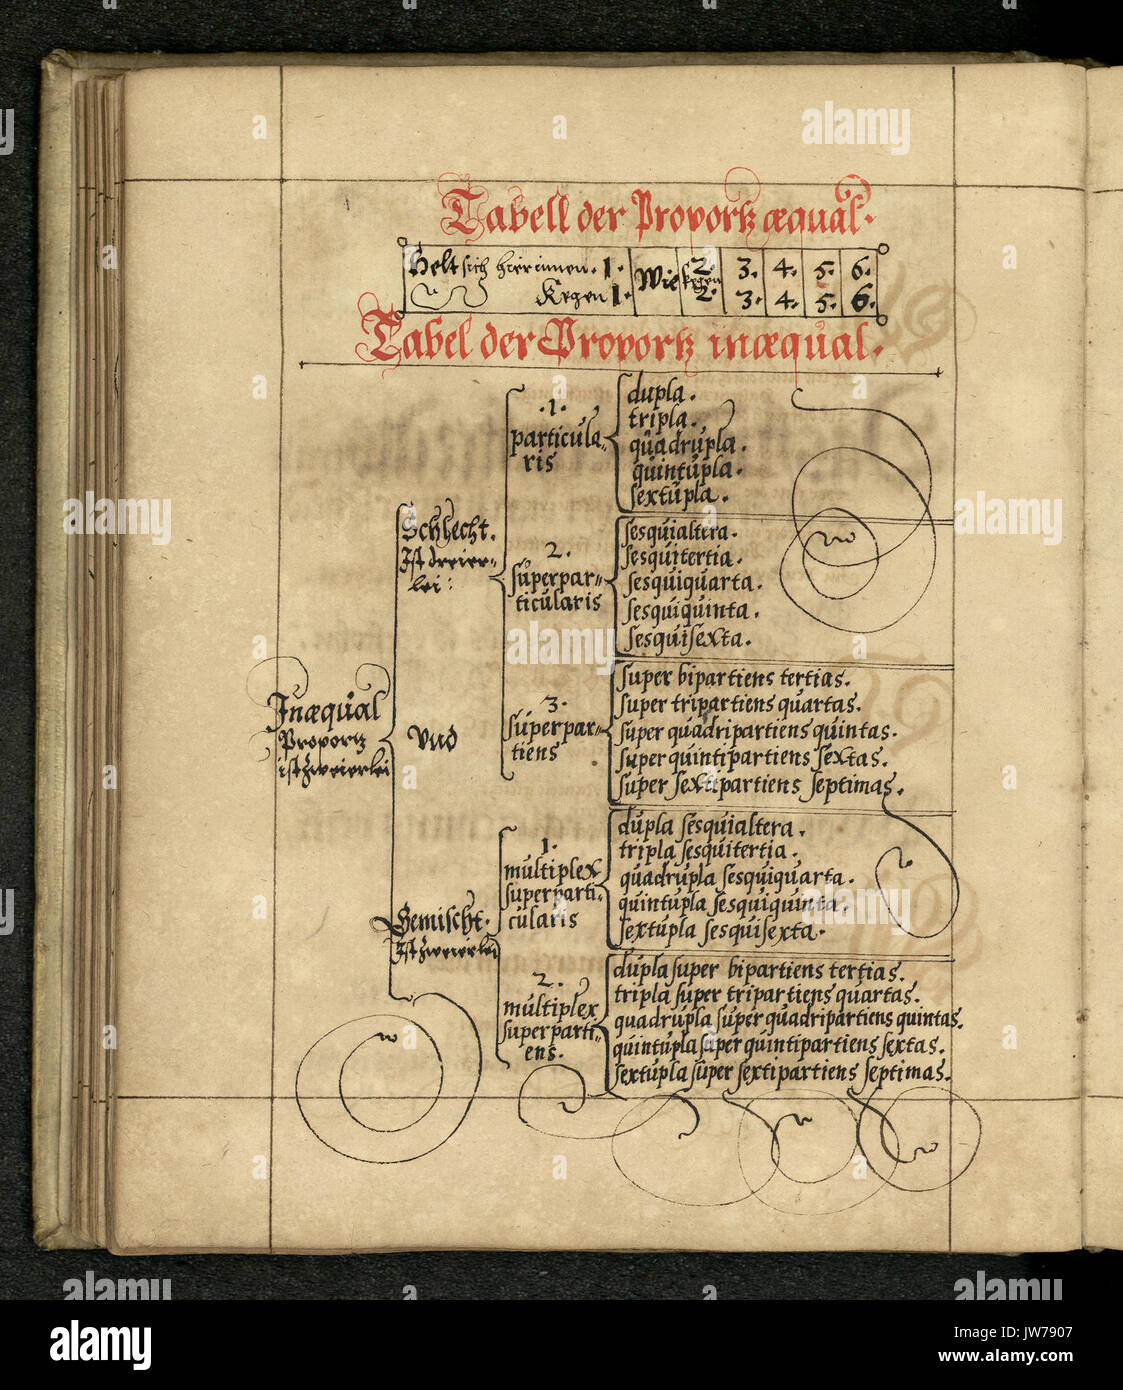 Tabell der Proportz æqual.
Helt sich hierinnen. 1. Wie 2. 3. 4. 5. 6.
Kegen 1. kegen 2. 3. 4. 5. 6.
Tabel der Proportz inæqual.
Inæqual
Proportz
ist zweierlei
Schlecht.
Ist dreier-
lei:
vnd
Gemischt.
Ist zweierlei
.1.
particula-
ris
dupla.
tripla.
quadrupla.
quintupla.
sextupla.
2.
superpar-
ticularis
sesquialtera.
sesquitertia.
sesquiquarta.
sesquiquinta.
sesquisexta.
3.
superpar-
tiens
super bipartiens tertias.
super tripartiens quartas.
super quadripartiens quintas.
super quintipartiens sextas.
super sextipartiens septimas.
1.
multiplex
superparti-
cularis
dupla sesquialtera.
tripla sesquitertia.
quadrupla sesquiquarta.
quintupla sesquiquinta.
sextupla sesquisexta.
2.
multiplex
superparti-
ens.
dupla super bipartiens tertias.
tripla super tripartiens quartas.
quadrupla super quadripartiens quintas.
quintupla super quintipartiens sextas.
sextupla super sextipartiens septimas.
alamy
alamy
Image ID: JW7907
www.alamy.com